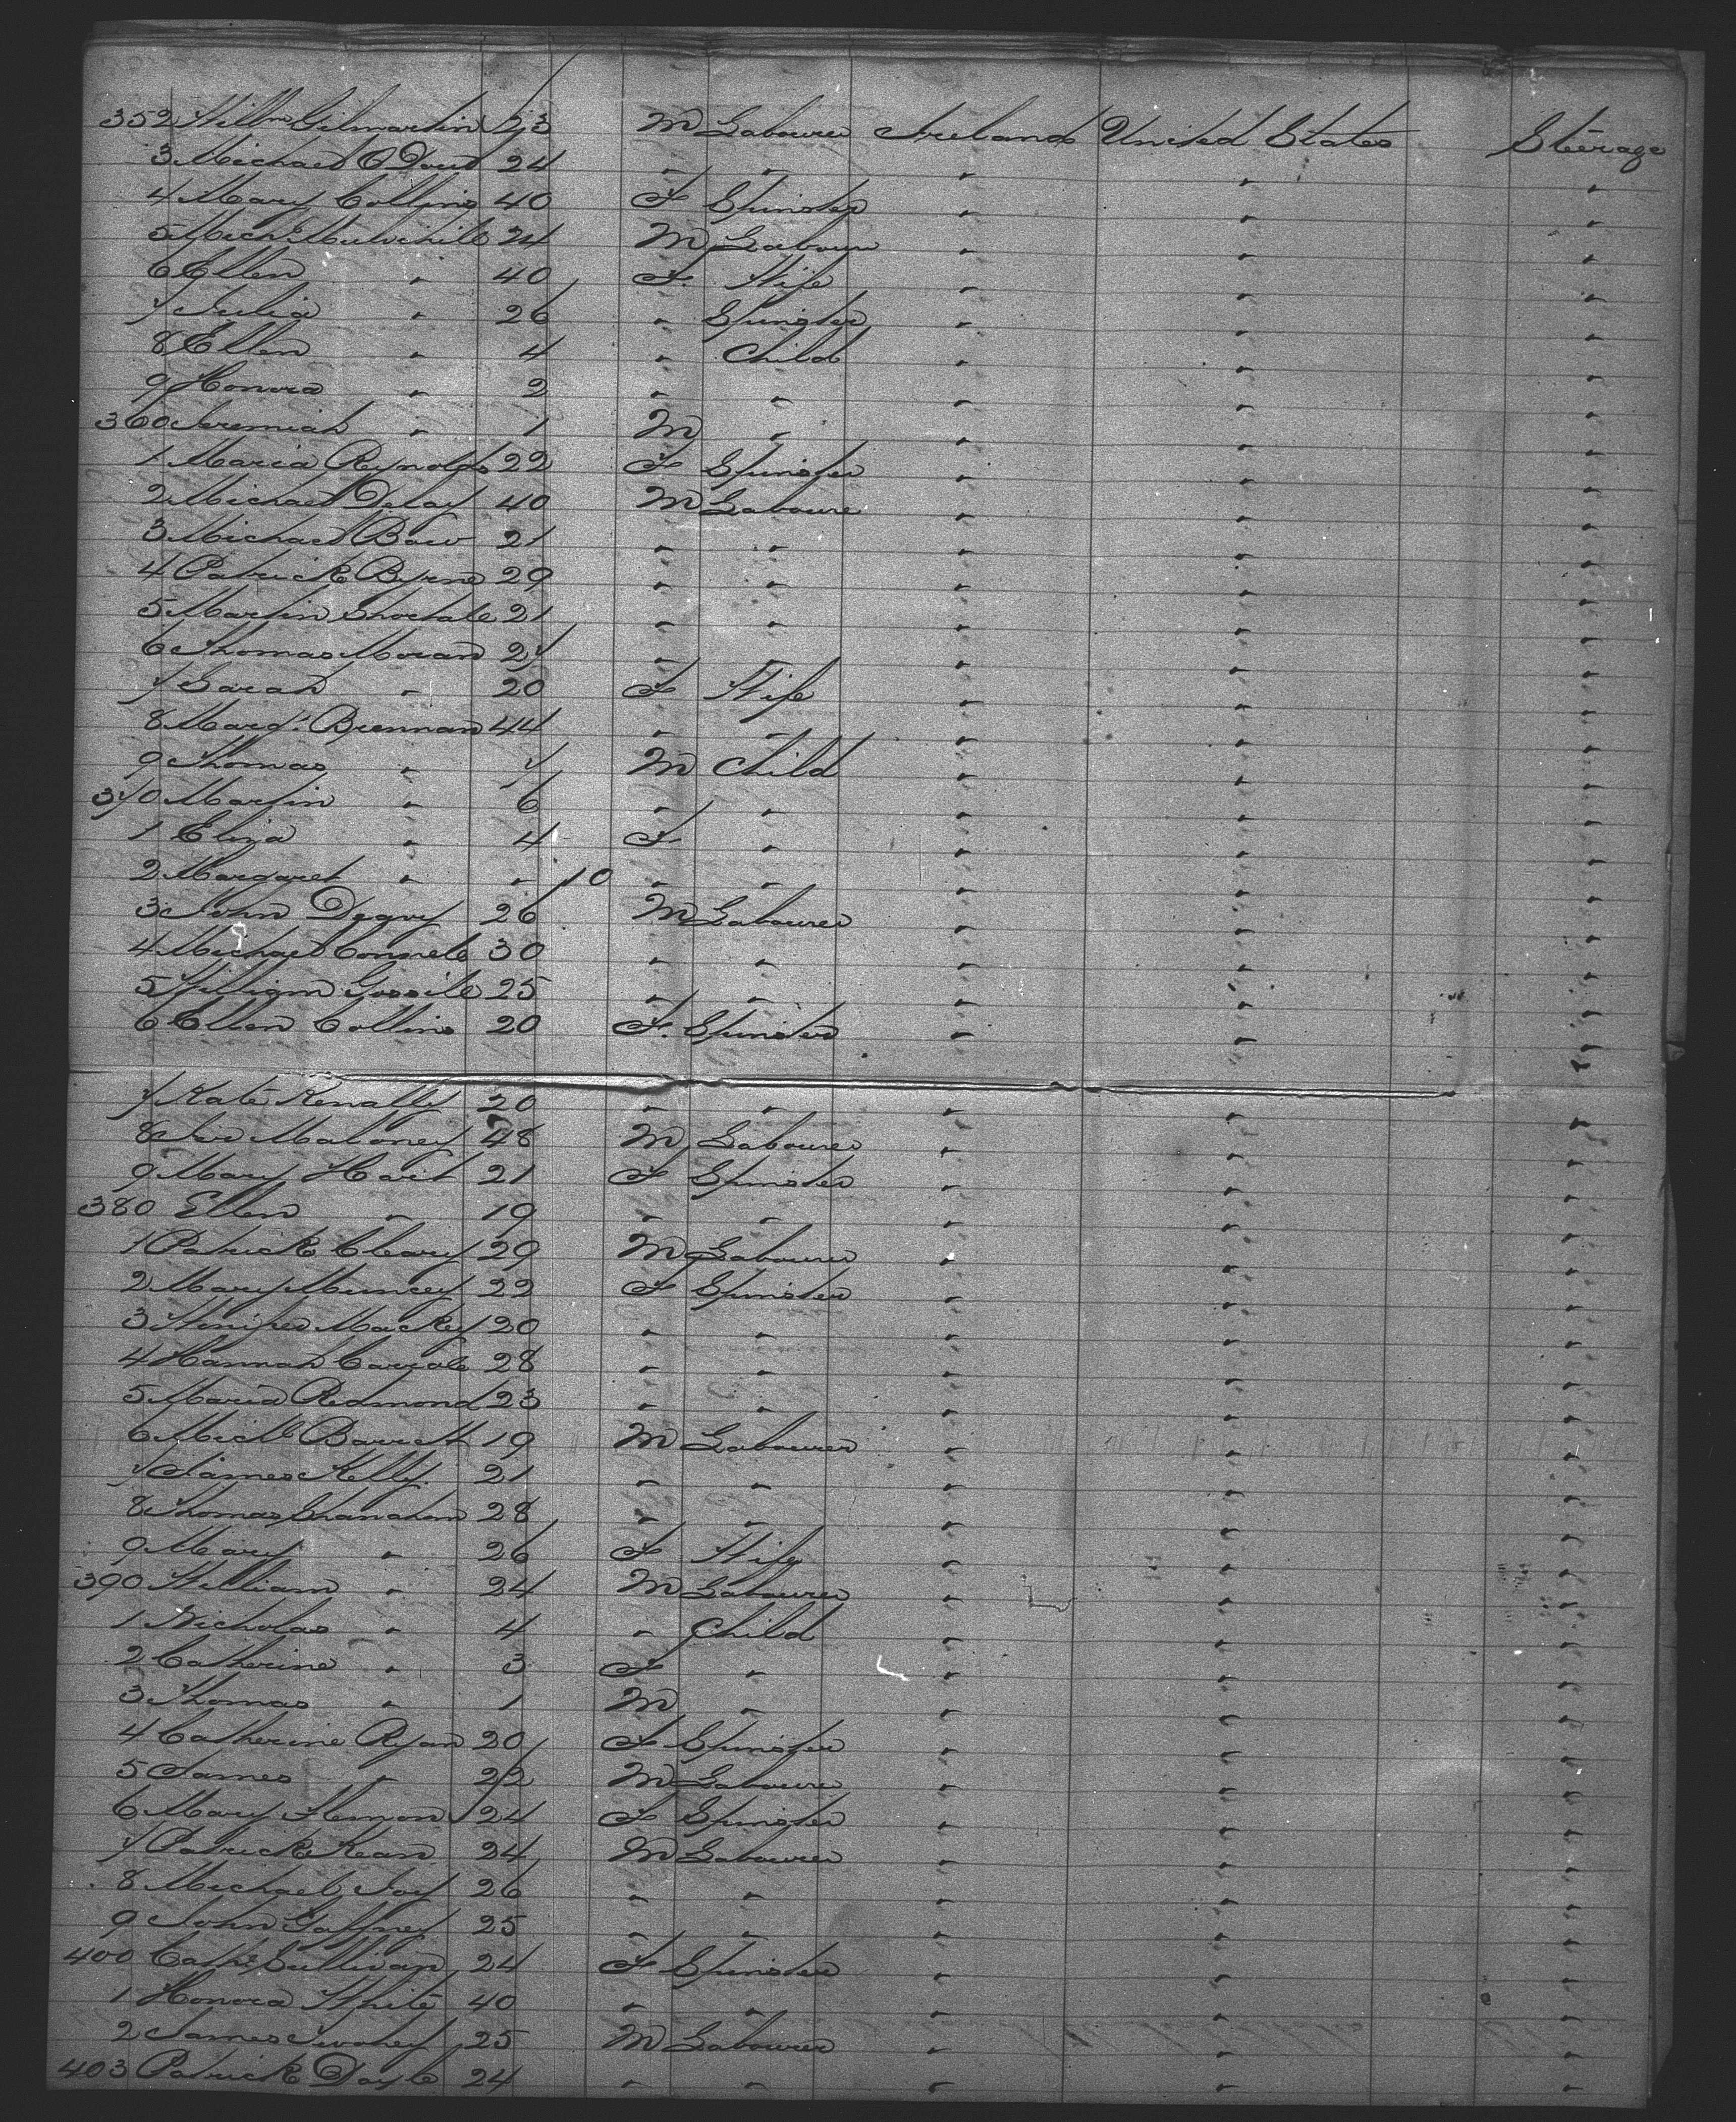 352 Willm Gilmartin 23 M Labourer Ireland United States Steerage
3 Michael O Dowd 24 " " " " "
4 Mary Collins 40 F Spinster " " "
5 Michl Mulvihill 24 M Labourer " " "
6 Ellen " 40 F. Wife " " "
7 Julia " 26 " Spinster " " "
8 Ellen " 4 " Child " " "
9 Honora " 2 " " " " "
360 Jeremiah " 1 M " " " "
1 Maria Reynolds 22 F Spinster " " "
2 Michael Delay 40 M Labourer " " "
3 Michael 21 " " " " "
4 Patrick Byrne 29 " " " " "
5 Martin 21 " " " " "
6 Thomas Moran 27 " " " "
7 Sarah " 20 F Wife " " "
8 Margt. Brennan 44 " " " " "
9 Thomas " 7 M Child " " "
370 Martin " 6 " " " " "
1 Eliza " 4 F " " " "
2 Margaret " " 10 " " " " "
3 John 26 M Labourer " " "
4 Michael 30 " " " " "
5 William 25 " " " " "
6 Ellen Collins 20 F. Spinster " " "
7 Kate Kenally 20 " " " " "
8 Maloney 48 M Labourer " " "
9 Mary 21 F Spinster " " "
380 Ellen " 19 " " " " "
1 Patrick Cleary 29 M Labourer " " "
2 Mary 22 F Spinster " " "
3 Winifred Mackey 20 " " " " "
4 Hannah 28 " " " " "
5 Maria Redmond 23 " " " " "
6 Michl Barrett 19 M Labourer " " "
7 James Kelly. 21 " " " " "
8 Thomas Shanahan 28 " " " " "
9 Mary " 26 F Wife " " "
390 William " 24 M Labourer " " "
1 Nicholas " 4 " Child " " "
2 Catherine " 3 F " " " "
3 Thomas " 1 M " " " "
4 Catherine Ryan 20 F Spinster " " "
5 James " 22 M Labourer " " "
6 Mary 24 F Spinster " " "
7 Patrick Kean 24 M Labourer " " "
8 Michael Joy 26 " " " " "
9 John Gaffney 25 " " " " "
400 Cathe Sullivan 24 F Spinster " " "
1 Honora White 40 " " " " "
2 James 25 M Labourer " " "
403 Patrick Doyle 24 " " " " "